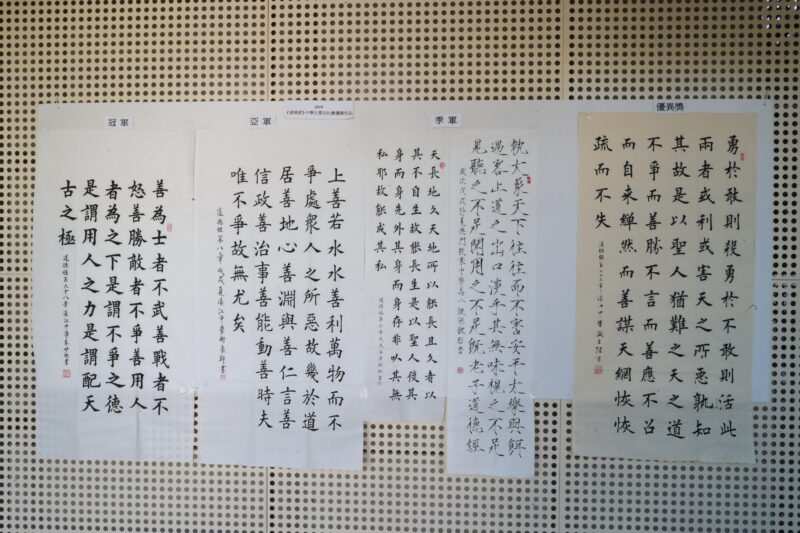 2018
《道德經》中學生書法比賽優勝作品
冠軍
善為士者不武善戰者不
怒善勝敵者不爭善用人
者為之下是謂不爭之德
是謂用人之力是謂配天
古之極
道德經第六十八章濠江中學
亞軍
上善若水水善利萬物而不
爭處衆人之所惡故幾於道
居善地心善淵與善仁言善
信政善治事善能動善時夫
唯不爭故無尤矣
道德經第八章戊戌夏濠江中學
季軍
天長地久天地所以能長且久者以
其不自生故能長生是以聖人後其
身而身先外其身而身存非以其無
私耶故能成其私
道德經第七章戊戌年
執大象天下往往而不害安平太樂與餌
過客止道之出口淡乎其無味視之不足
見聽之不足聞用之不足既老子道德經
歲次戊戌仲夏澳門教業中學高一級
優異獎
勇於敢則殺勇於不敢則活此
兩者或利或害天之所惡孰知
其故是以聖人猶難之天之道
不爭而善勝不言而善應不召
而自來繟然而善謀天網恢恢
疏而不失
道德經